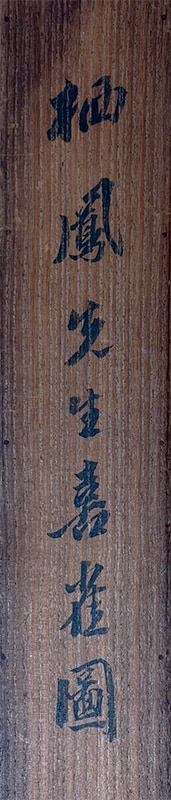 栖鳳先生喜雀圖